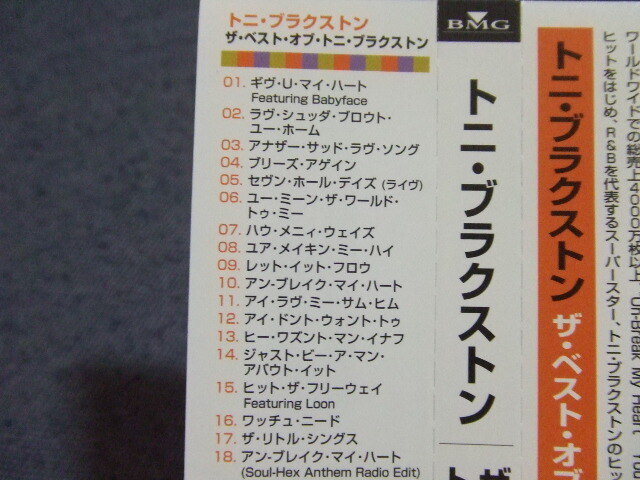 トニ・ブラクストン
ザ・ベスト・オブ・トニ・ブラクストン
01. ギヴ・U・マイ・ハート
Featuring Babyface
02. ラヴ・シュッダ・ブロウト・
ユー・ホーム
03. アナザー・サッド・ラヴ・ソング
04. ブリーズ・アゲイン
05. セヴン・ホール・デイズ (ライヴ)
06. ユー・ミーン・ザ・ワールド・
トゥ・ミー
07. ハウ・メニィ・ウェイズ
08. ユア・メイキン・ミー・ハイ
09. レット・イット・フロウ
10. アン-ブレイク・マイ・ハート
11. アイ・ラヴ・ミー・サム・ヒム
12. アイ・ドント・ウォント・トゥ
13. ヒー・ワズント・マン・イナフ
14. ジャスト・ビー・ア・マン・
アバウト・イット
15. ヒット・ザ・フリーウェイ
Featuring Loon
16. ワッチュ・ニード
17. ザ・リトル・シングス
18. アン-ブレイク・マイ・ハート
(Soul-Hex Anthem Radio Edit)
BMG
トニ・ブラクストン
トニ・ブラクストン ザ・ベスト・オブ
ワールドワイドでの総売上4000万枚以上
ヒットをはじめ、R&Bを代表するスーパースター、トニ・ブラクストンのヒッ